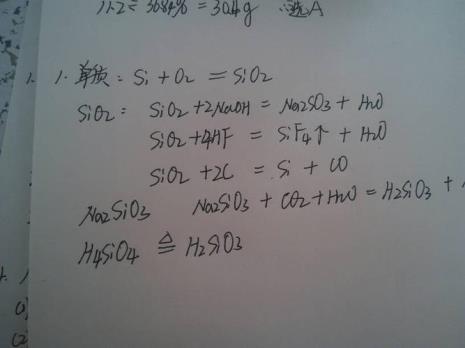 11.2 = 36.84% = 30.4g ∴选A
1. 1. 单质: Si + O2 = SiO2
SiO2: SiO2 + 2NaOH = Na2SO3 + H2O
SiO2 + 4HF = SiF4↑ + H2O
SiO2 + 2C = Si + CO
Na2SiO3 Na2SiO3 + CO2 + H2O = H2SiO3 +
H4SiO4 ≜ H2SiO3
(1)
(2)